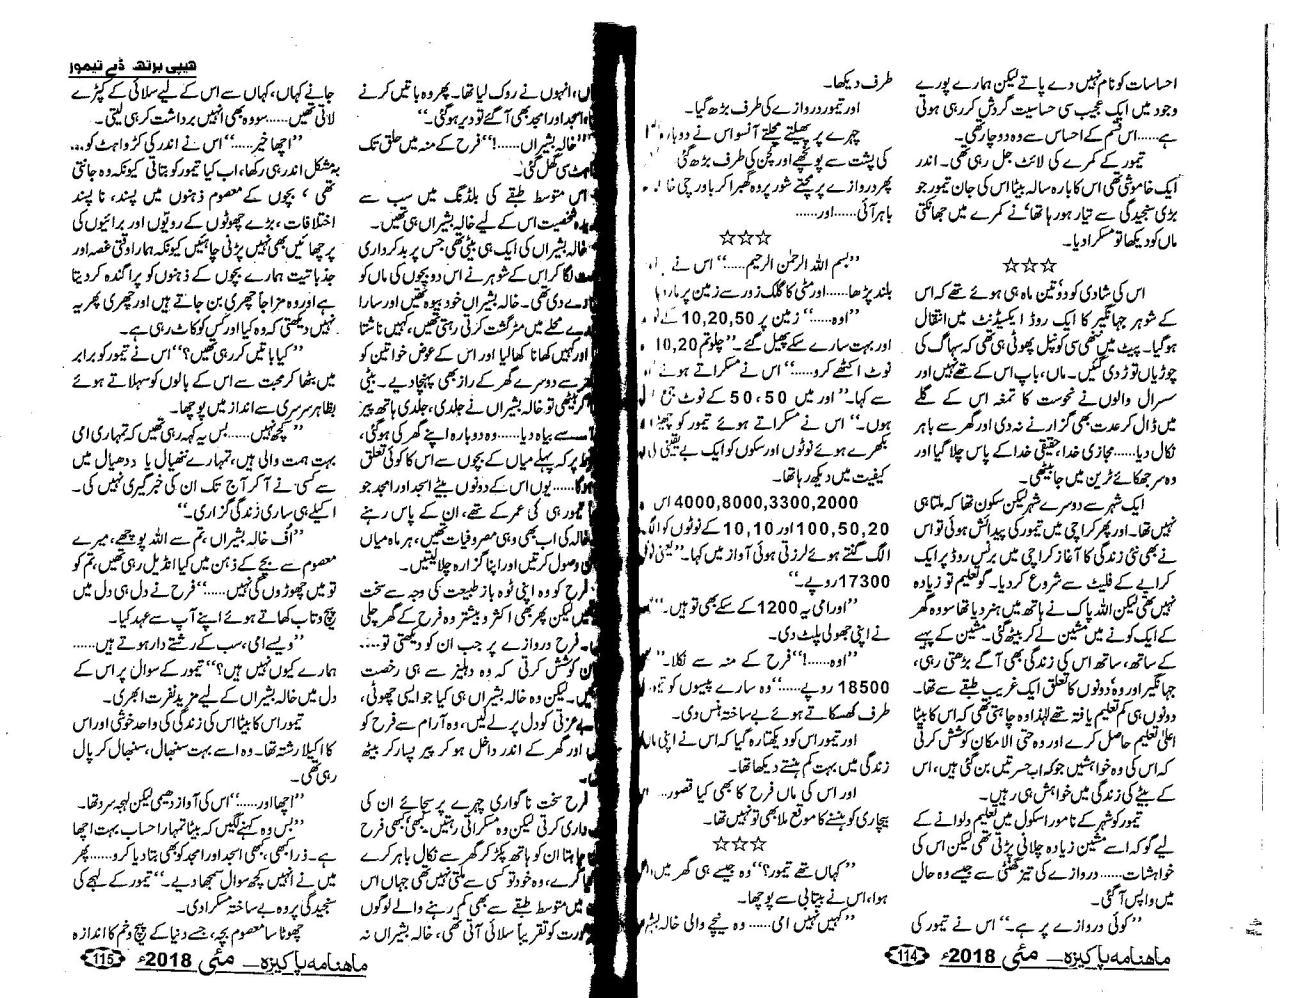 احساسات کو نام نہیں دے پاتے لیکن ہمارے پورے
وجود میں ایک عجیب سی حساسیت گردش کر رہی ہوتی
ہے......اس قسم کے احساس سے وہ دوچار تھی۔
تیمور کے کمرے کی لائٹ جل رہی تھی۔ اندر
ایک خاموشی تھی اس کا بارہ سالہ بیٹا اس کی جان تیمور جو
بڑی سنجیدگی سے تیار ہو رہا تھا نے کمرے میں جھانکتی
ماں کو دیکھا تو مسکرا دیا۔
☆☆☆
اس کی شادی کو دو، تین ماہ ہی ہوئے تھے کہ اس
کے شوہر جہانگیر کا ایک روڈ ایکسیڈنٹ میں انتقال
ہو گیا۔ پیٹ میں ننھی سی کونپل پھوٹی ہی تھی کہ سہاگ کی
چوڑیاں توڑ دی گئیں۔ ماں، باپ اس کے تھے نہیں اور
سسرال والوں نے نحوست کا تمغہ اس کے گلے
میں ڈال کر عدت بھی گزارنے نہ دی اور گھر سے باہر
نکال دیا......مجازی خدا، حقیقی خدا کے پاس چلا گیا اور
وہ سر جھکائے ٹرین میں جا بیٹھی۔
ایک شہر سے دوسرے شہر لیکن سکون تھا کہ ملتا ہی
نہیں تھا۔ اور پھر کراچی میں تیمور کی پیدائش ہوئی تو اس
نے بھی نئی زندگی کا آغاز کراچی میں برنس روڈ پر ایک
کرایے کے فلیٹ سے شروع کر دیا۔ گو تعلیم تو زیادہ
نہیں تھی لیکن اللہ پاک نے ہاتھ میں ہنر دیا تھا سو وہ گھر
کے ایک کونے میں مشین لے کر بیٹھ گئی۔ مشین کے پہیے
کے ساتھ، ساتھ اس کی زندگی بھی آگے بڑھتی رہی،
جہانگیر اور وہ دونوں کا تعلق ایک غریب طبقے سے تھا۔
دونوں ہی کم تعلیم یافتہ تھے لہٰذا وہ چاہتی تھی کہ اس کا بیٹا
اعلیٰ تعلیم حاصل کرے اور وہ حتی الامکان کوشش کرتی
کہ اس کی وہ خواہشیں جو کہ اب حسرتیں بن گئی ہیں، اس
کے بیٹے کی زندگی میں خواہش ہی رہیں۔
تیمور کو شہر کے نامور اسکول میں تعلیم دلوانے کے
لیے گو کہ اسے مشین زیادہ چلانی پڑتی تھی لیکن اس کی
خواہشات......دروازے کی تیز گھنٹی سے جیسے وہ حال
میں واپس آ گئی۔
”کوئی دروازے پر ہے۔“ اس نے تیمور کی
طرف دیکھا۔
اور تیمور دروازے کی طرف بڑھ گیا۔
چہرے پر پھیلتے مچلتے آنسو اس نے دوبارہ
کی پشت سے پونچھے اور کچن کی طرف بڑھ گئی
پھر دروازے پر مچتے شور پر وہ گھبرا کر باورچی خا
باہر آئی......اور......
☆☆☆
”بسم اللہ الرحمٰن الرحیم.....“ اس نے
بلند پڑھا......اور مٹی کا گلک زور سے زمین پر مارا
”اوہ.....“ زمین پر 10,20,50 کے
اور بہت سارے سکے پھیل گئے۔ ”چلو تم 10,20
نوٹ اکٹھے کرو.....“ اس نے مسکراتے ہوئے
سے کہا۔ ”اور میں 50،50 کے نوٹ جمع
ہوں۔“ اس نے مسکراتے ہوئے تیمور کو چھیڑا
بکھرے ہوئے نوٹوں اور سکوں کو ایک بے یقینی
کیفیت میں دیکھ رہا تھا۔
4000,8000,3300,2000 اس
100,50,20 اور 10,10 کے نوٹوں کو الگ
الگ گنتے ہوئے لرزتی ہوئی آواز میں کہا۔ ”یعنی
17300 روپے۔“
”اور امی یہ 1200 کے سکے بھی تو ہیں۔“
نے اپنی جھولی پلٹ دی۔
”اوہ.....!“ فرح کے منہ سے نکلا۔
18500 روپے.....“ وہ سارے پیسوں کو
طرف کھسکاتے ہوئے بے ساختہ ہنس دی۔
اور تیمور اس کو دیکھتا رہ گیا کہ اس نے اپنی ماں
زندگی میں بہت کم ہنستے دیکھا تھا۔
اور اس کی ماں فرح کا بھی کیا قصور...
بیچاری کو ہنسنے کا موقع ملا بھی تو نہیں تھا۔
☆☆☆
”کہاں تھے تیمور؟“ وہ جیسے ہی گھر میں
ہوا، اس نے بیتابی سے پوچھا۔
”کہیں نہیں امی......وہ نیچے والی خالہ
ماہنامہ پاکیزہ۔ مئی 2018ء
114
ہیپی برتھ ڈے تیمور
انہوں نے روک لیا تھا۔ پھر وہ باتیں کرنے
اسجد اور امجد بھی آ گئے تو دیر ہو گئی۔“
”خالہ بشیراں.....!“ فرح کے منہ میں حلق تک
سی گھل گئی۔
اس متوسط طبقے کی بلڈنگ میں سب سے
شخصیت اس کے لیے خالہ بشیراں ہی تھیں۔
خالہ بشیراں کی ایک ہی بیٹی تھی جس پر بدکرداری
لگا کر اس کے شوہر نے اس دو بچوں کی ماں کو
دے دی تھی۔ خالہ بشیراں خود بیوہ تھیں اور سارا
محلے میں مٹرگشت کرتی رہتی تھیں، کہیں ناشتا
اور کہیں کھانا کھا لیا اور اس کے عوض خواتین کو
سے دوسرے گھر کے راز بھی پہنچا دیے۔ بیٹی
گھر بیٹھی تو خالہ بشیراں نے جلدی، جلدی ہاتھ پیر
سے بیاہ دیا......وہ دوبارہ اپنے گھر کی ہو گئی،
پر کہ پہلے میاں کے بچوں سے اس کا کوئی تعلق
......یوں اس کے دونوں بیٹے اسجد اور امجد جو
تیمور ہی کی عمر کے تھے، ان کے پاس رہنے
خالہ کی اب بھی وہی مصروفیات تھیں، ہر ماہ میاں
وصول کرتیں اور اپنا گزارہ چلا لیتیں۔
فرح کو وہ اپنی ٹوہ باز طبیعت کی وجہ سے سخت
لیکن پھر بھی اکثر و بیشتر وہ فرح کے گھر چلی
فرح دروازے پر جب ان کو دیکھتی تو....
کوشش کرتی کہ وہ دہلیز سے ہی رخصت
لیکن وہ خالہ بشیراں ہی کیا جو ایسی چھوٹی،
بے عزتی کو دل پر لے لیں، وہ آرام سے فرح کو
اور گھر کے اندر داخل ہو کر پیر پسار کر بیٹھ
فرح سخت ناگواری چہرے پر سجائے ان کی
داری کرتی لیکن وہ مسکراتی رہتیں، کبھی، کبھی فرح
چاہتا ان کو ہاتھ پکڑ کر گھر سے نکال باہر کرے
کرے، وہ خود تو کسی سے ملتی نہیں تھی جہاں اس
میں متوسط طبقے سے بھی کم رہنے والے لوگوں
کو تقریباً سلائی آتی تھی، خالہ بشیراں نہ
جانے کہاں، کہاں سے اس کے لیے سلائی کے کپڑے
لاتی تھیں......سو وہ بھی انہیں برداشت کر ہی لیتی۔
”اچھا خیر.....“ اس نے اندر کی کڑواہٹ کو...
بمشکل اندر ہی رکھا، اب کیا تیمور کو بتاتی کیونکہ وہ جانتی
تھی، بچوں کے معصوم ذہنوں میں پسند، ناپسند
اختلافات، بڑے چھوٹوں کے رویوں اور برائیوں کی
پرچھائیں بھی نہیں پڑنی چاہئیں کیونکہ ہمارا وقتی غصہ اور
جذباتیت ہمارے بچوں کے ذہنوں کو پراگندہ کر دیتا
ہے اور وہ مزاجاً چھری بن جاتے ہیں اور چھری پھر یہ
نہیں دیکھتی کہ وہ کیا اور کس کو کاٹ رہی ہے۔
”کیا باتیں کر رہی تھیں؟“ اس نے تیمور کو برابر
میں بٹھا کر محبت سے اس کے بالوں کو سہلاتے ہوئے
بظاہر سرسری سے انداز میں پوچھا۔
”کچھ نہیں......بس یہ کہہ رہی تھیں کہ تمہاری امی
بہت ہمت والی ہیں، تمہارے ننھیال یا ددھیال میں
سے کسی نے آ کر آج تک ان کی خبر گیری نہیں کی۔
اکیلے ہی ساری زندگی گزاری۔“
”اُف خالہ بشیراں، تم سے اللہ پوچھے، میرے
معصوم سے بچے کے ذہن میں کیا انڈیل رہی تھیں، تم کو
تو میں چھوڑوں گی نہیں.....“ فرح نے دل ہی دل میں
پیچ و تاب کھاتے ہوئے اپنے آپ سے عہد کیا۔
”ویسے امی، سب کے رشتے دار ہوتے ہیں......
ہمارے کیوں نہیں ہیں؟“ تیمور کے سوال پر اس کے
دل میں خالہ بشیراں کے لیے مزید نفرت ابھری۔
تیمور اس کا بیٹا اس کی زندگی کی واحد خوشی اور اس
کا اکیلا رشتہ تھا۔ وہ اسے بہت سنبھال، سنبھال کر پال
رہی تھی۔
”اچھا اور.....“ اس کی آواز دھیمی لیکن لہجہ سرد تھا۔
”بس وہ کہنے لگیں کہ بیٹا تمہارا حساب بہت اچھا
ہے۔ ذرا بھی، بھی اسجد اور امجد کو بھی بتا دیا کرو......پھر
میں نے انہیں کچھ سوال سمجھا دیے۔“ تیمور کے لہجے کی
سنجیدگی پر وہ بے ساختہ مسکرا دی۔
چھوٹا سا معصوم بچہ، جسے دنیا کے پیچ و خم کا اندازہ
ماہنامہ پاکیزہ۔ مئی 2018ء
115